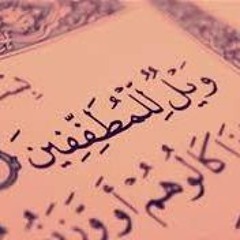 وَيْلٌ لِّلْمُطَفِّفِينَ
كَالُوهُمْ أَوْ وَزَنُ